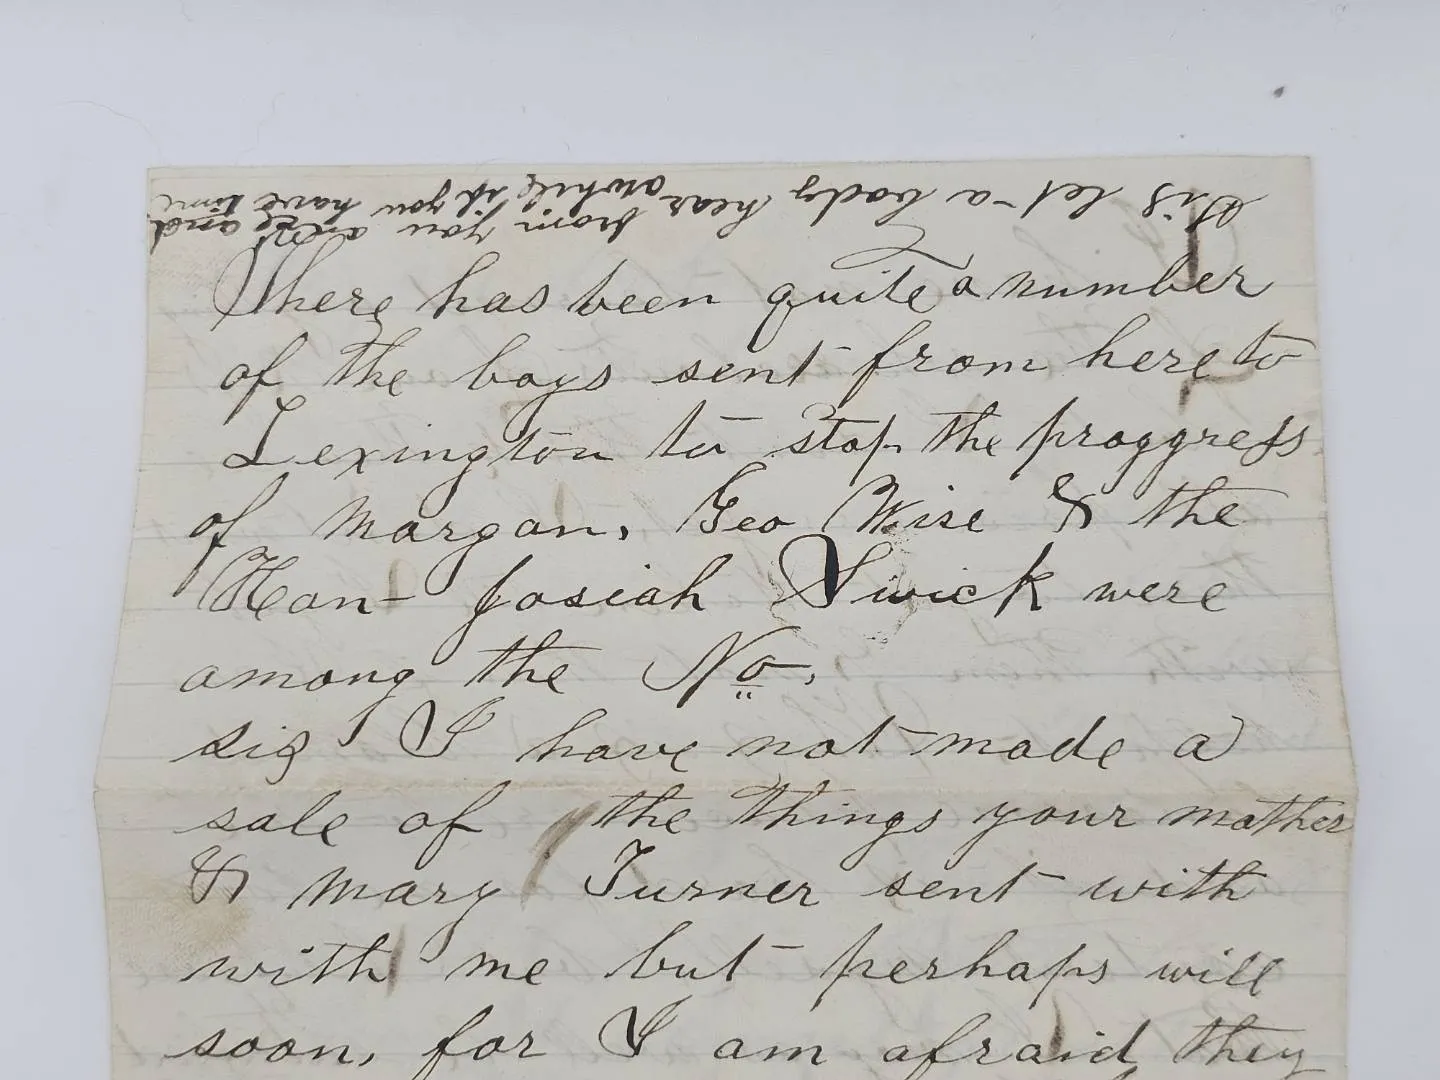 this let a body hear
from you once and
awhile if you have time
There has been quite a number
of the boys sent from here to
Lexington to stop the proggress
of Morgan, Geo Wise & the
Hon Josiah Swick were
among the No,
sis I have not made a
sale of the things your mother
& Mary Turner sent with
with me but perhaps will
soon, for I am afraid they